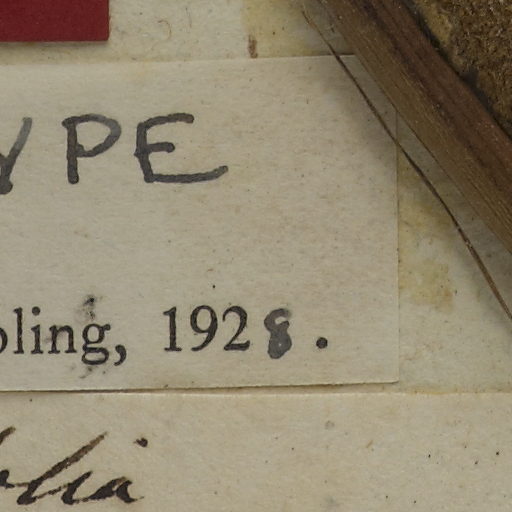 YPE
oling, 1928.
lia